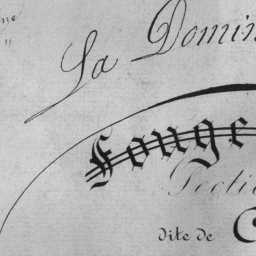 La Domin
Fouge
Sectio
dite de C